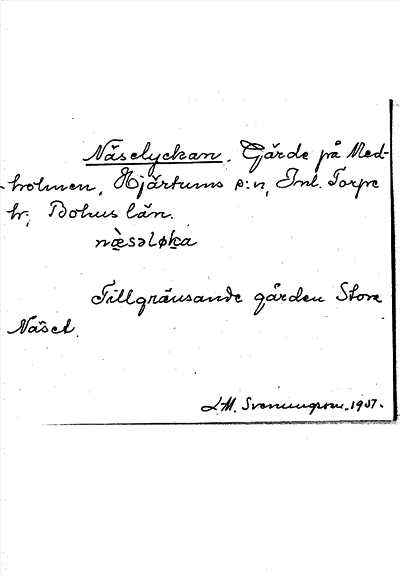 Näselyckan. Gärde på Med-
-holmen, Hjärtums s:n, Inl. Torpe
hr, Bohus län.
næ̀sələka
Tillgränsande gården Stora
Näset.
L.M. Svenungsson. 1937.